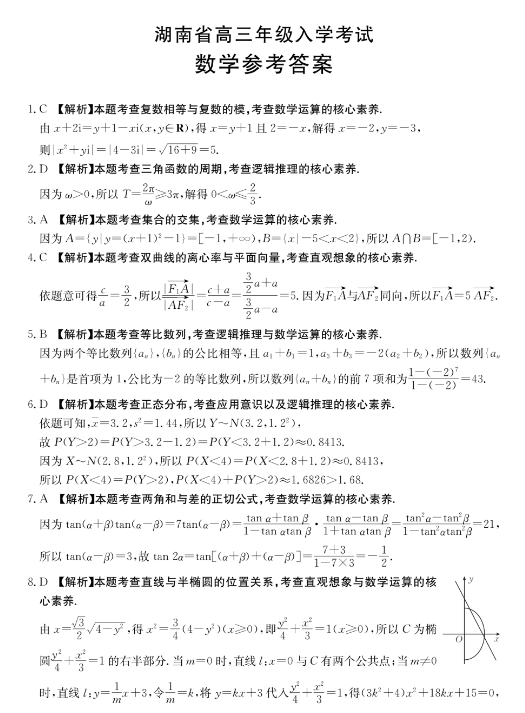 湖南省高三年级入学考试
数学参考答案
1. C 【解析】本题考查复数相等与复数的模,考查数学运算的核心素养.
由 x+2i=y+1-xi(x,y∈R),得 x=y+1 且 2=-x,解得 x=-2,y=-3,
则|x²+yi|=|4-3i|=√(16+9)=5.
2. D 【解析】本题考查三角函数的周期,考查逻辑推理的核心素养.
因为 ω>0,所以 T=2π/ω≥3π,解得 0<ω≤2/3.
3. A 【解析】本题考查集合的交集,考查数学运算的核心素养.
因为 A={y|y=(x+1)²-1}=[-1,+∞),B={x|-5<x<2},所以 A∩B=[-1,2).
4. C 【解析】本题考查双曲线的离心率与平面向量,考查直观想象的核心素养.
依题意可得 c/a=3/2,所以 |F₁A→|/|AF₂→|=(c+a)/(c-a)=(3/2 a+a)/(3/2 a-a)=5.因为F₁A→与AF₂→同向,所以F₁A→=5 AF₂→.
5. B 【解析】本题考查等比数列,考查逻辑推理与数学运算的核心素养.
因为两个等比数列{aₙ},{bₙ}的公比相等,且 a₁+b₁=1,a₃+b₃=-2(a₂+b₂),所以数列{aₙ
+bₙ}是首项为 1,公比为-2 的等比数列,所以数列{aₙ+bₙ}的前 7 项和为 (1-(-2)⁷)/(1-(-2))=43.
6. D 【解析】本题考查正态分布,考查应用意识以及逻辑推理的核心素养.
依题可知,x̄=3.2,s²=1.44,所以 Y~N(3.2,1.2²),
故 P(Y>2)=P(Y>3.2-1.2)=P(Y<3.2+1.2)≈0.8413.
因为 X~N(2.8,1.2²),所以 P(X<4)=P(X<2.8+1.2)≈0.8413,
所以 P(X<4)=P(Y>2),P(X<4)+P(Y>2)≈1.6826>1.68.
7. A 【解析】本题考查两角和与差的正切公式,考查数学运算的核心素养.
因为 tan(α+β)tan(α-β)=7tan(α-β)=(tan α+tan β)/(1-tan αtan β)·(tan α-tan β)/(1+tan αtan β)=(tan²α-tan²β)/(1-tan²αtan²β)=21,
所以 tan(α-β)=3,故 tan 2α=tan[(α+β)+(α-β)]=(7+3)/(1-7×3)=-1/2.
8. D 【解析】本题考查直线与半椭圆的位置关系,考查直观想象与数学运算的核
心素养.
由 x=√3/2 √(4-y²),得 x²=3/4(4-y²)(x≥0),即 y²/4+x²/3=1(x≥0),所以 C 为椭
圆 y²/4+x²/3=1 的右半部分.当 m=0 时,直线 l:x=0 与 C 有两个公共点;当 m≠0
时,直线 l:y=1/m x+3,令 1/m=k,将 y=kx+3 代入 y²/4+x²/3=1,得(3k²+4)x²+18kx+15=0,
y
O
x